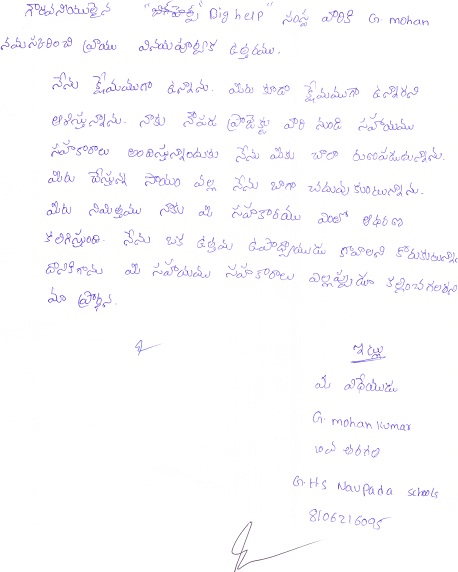 గౌరవనీయులైన "డిగ్ హెల్ప్" Dig help" సంస్థ వారికి G. mohan
నమస్కరించి వ్రాయు వినయపూర్వక ఉత్తరము.
నేను క్షేమముగా ఉన్నాను. మీరు కూడా క్షేమముగా ఉన్నారని
ఆశిస్తున్నాను. నాకు నౌపడ ప్రాజెక్టు వారి నుండి సహాయము
సహకారాలు అందిస్తున్నందుకు నేను మీకు చాలా రుణపడుతున్నాను.
మీరు చేస్తున్న సాయం వల్ల నేను బాగా చదువుకుంటున్నాను.
మీరు నిమిత్తము నాకు మీ సహకారము ఎంతో ఆధరణ
కలిగిస్తుంది. నేను ఒక ఉత్తమ ఉపాధ్యాయుడు కావాలని కోరుకుంటున్నా
దానికిగాను మీ సహాయము సహకారాలు ఎల్లప్పుడూ కల్పించగలరని
మా ప్రార్థన.
ఇట్లు
మీ విధేయుడు
G. mohan kumar
10వ తరగతి
G.HS Naupada schools
8106216095